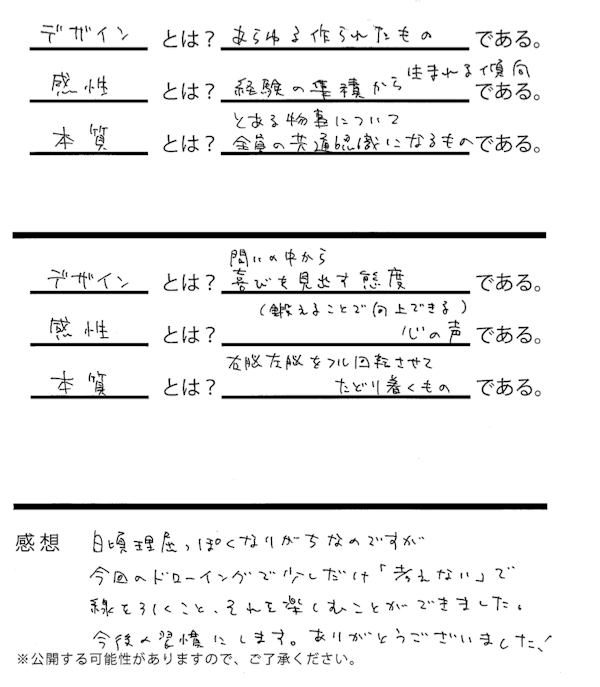 デザイン とは？ あらゆる作られたもの である。
感性 とは？ 経験の準積から生まれる傾向 である。
本質 とは？ とある物事について
全員の共通認識になるもの である。
デザイン とは？ 問いの中から
喜びを見出す態度 である。
感性 とは？ (鍛えることで向上できる)
心の声 である。
本質 とは？ 右脳左脳をフル回転させて
たどり着くもの である。
感想 日頃理屈っぽくなりがちなのですが
今回のドローイングで少しだけ「考えない」で
線を引くこと、それを楽しむことができました。
今後の習慣にします。ありがとうございました！
※公開する可能性がありますので、ご了承ください。